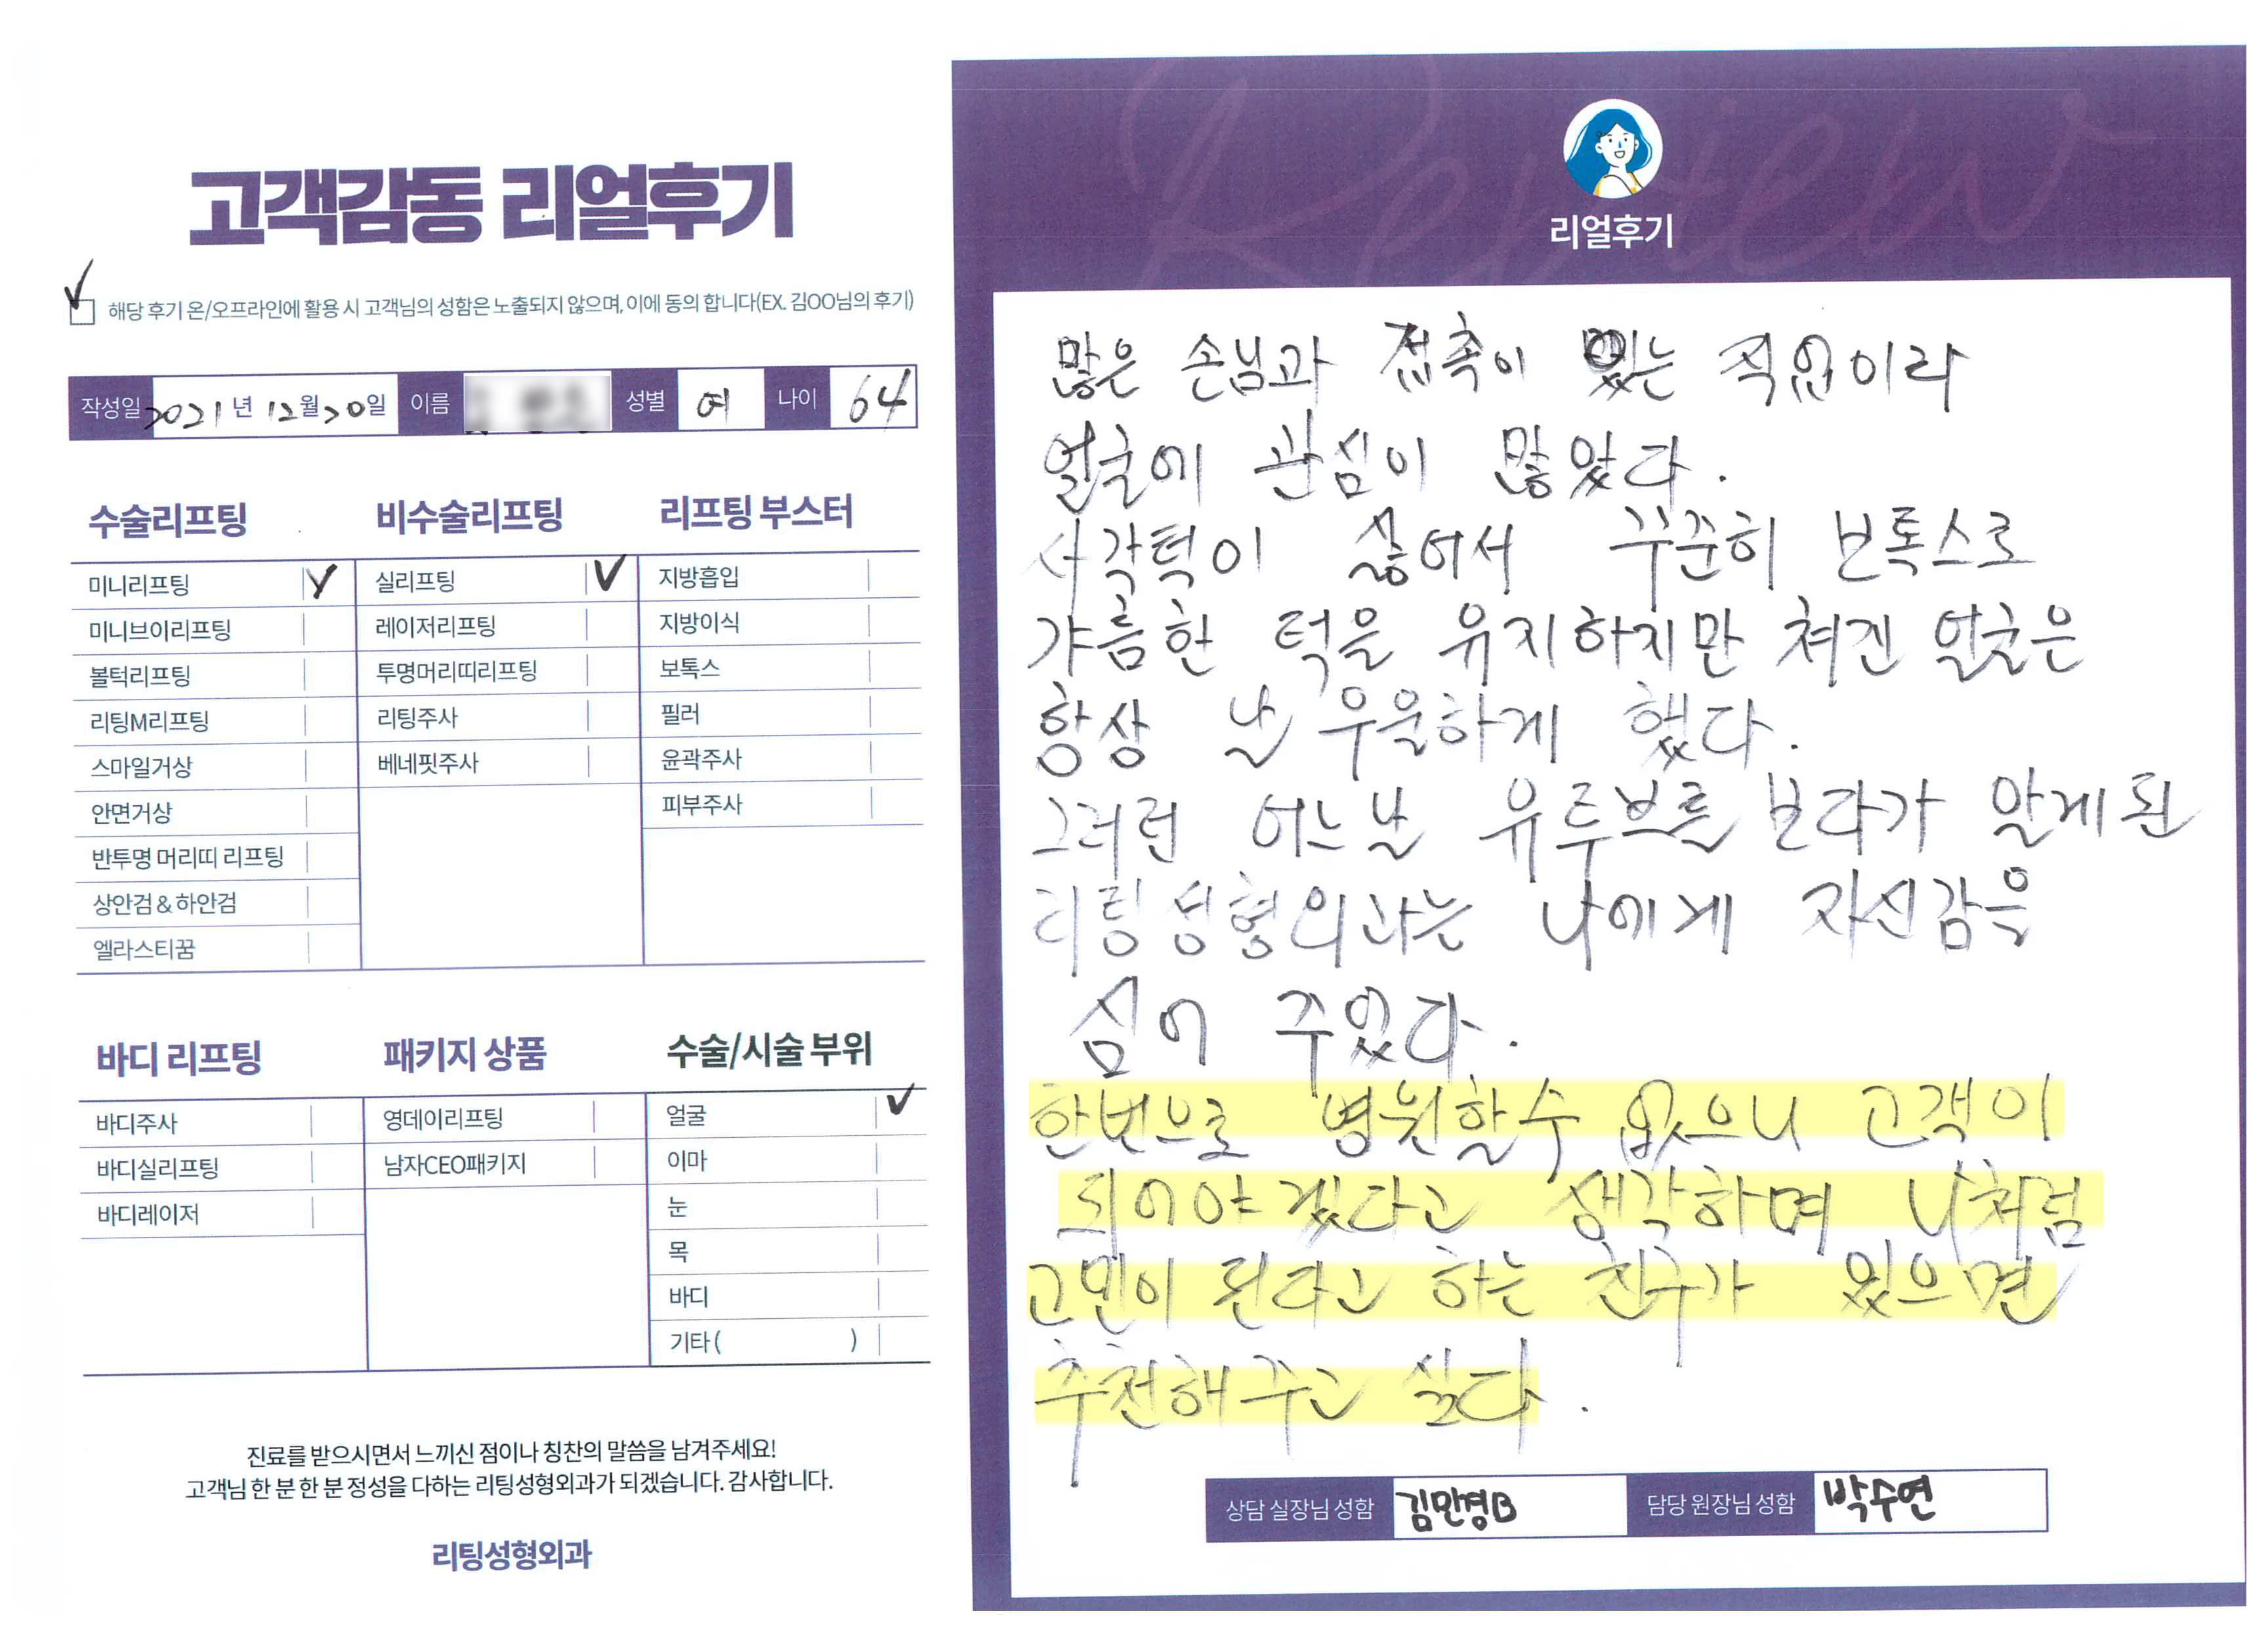 고객감동 리얼후기
해당 후기 온/오프라인에 활용 시 고객님의 성함은 노출되지 않으며, 이에 동의 합니다(EX. 김OO님의 후기)
작성일 2021년 12월 20일 이름 성별 여 나이 64
수술리프팅
미니리프팅
미니브이리프팅
볼턱리프팅
리팅M리프팅
스마일거상
안면거상
반투명 머리띠 리프팅
상안검 & 하안검
엘라스티꿈
비수술리프팅
실리프팅
레이저리프팅
투명머리띠리프팅
리팅주사
베네핏주사
리프팅 부스터
지방흡입
지방이식
보톡스
필러
윤곽주사
피부주사
바디 리프팅
바디주사
바디실리프팅
바디레이저
패키지 상품
영데이리프팅
남자CEO패키지
수술/시술 부위
얼굴
이마
눈
목
바디
기타 ( )
진료를 받으시면서 느끼신 점이나 칭찬의 말씀을 남겨주세요!
고객님 한 분 한 분 정성을 다하는 리팅성형외과가 되겠습니다. 감사합니다.
리팅성형외과
Review
리얼후기
많은 손님과 접촉이 있는 직업이라
얼굴에 관심이 많았다.
사각턱이 싫어서 꾸준히 보톡스로
갸름한 턱을 유지하지만 쳐진 얼굴은
항상 날 우울하게 했다.
그러던 어느날 유튜브를 보다가 알게된
리팅성형외과는 나에게 자신감을
심어 주었다.
한번으로 병원할수 없으니 고객이
되어야 겠다고 생각하며 나처럼
고민이 된다고 하는 친구가 있으면
추천해주고 싶다.
상담 실장님 성함 김민경B 담당 원장님 성함 박수연